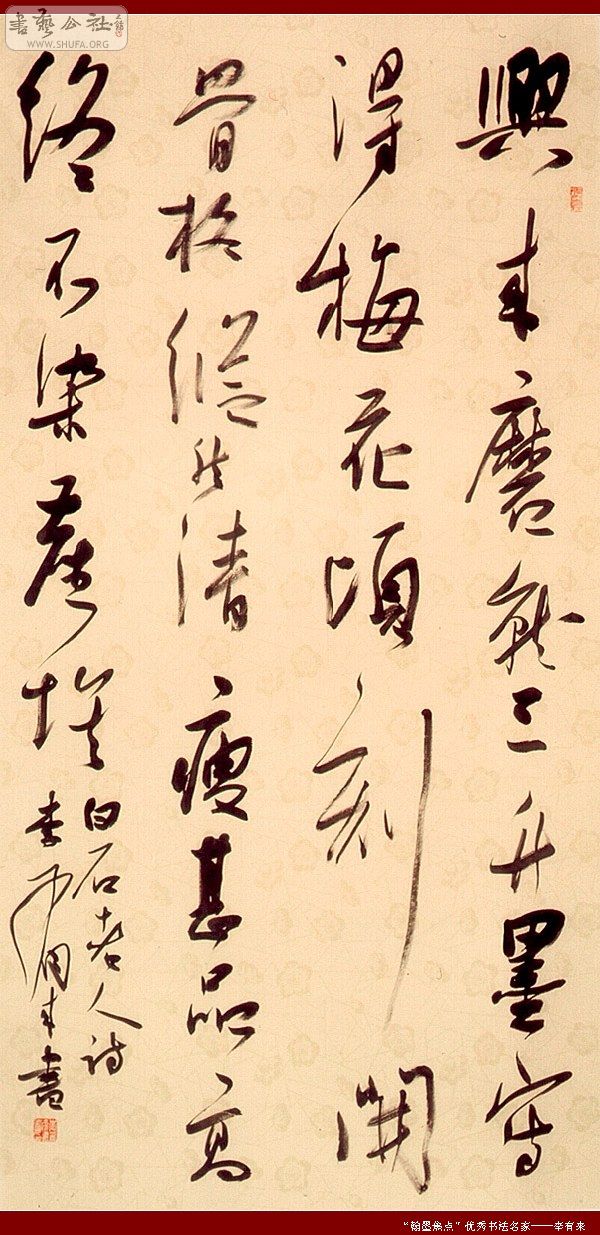 書藝公社
WWW.SHUFA.ORG
興来磨就三升墨寫
得梅花頃刻開
骨格縱然清瘦甚品高
終不染塵埃
白石老人詩
李有来書
“翰墨焦点”优秀书法名家——李有来